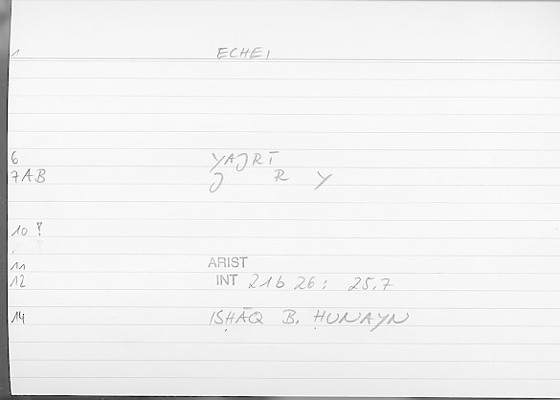 1 ECHEI
6 YAJRĪ
7AB J R Y
10 !
11 ARIST
12 INT 21b 26 : 25.7
14 ISḤĀQ B. ḤUNAYN